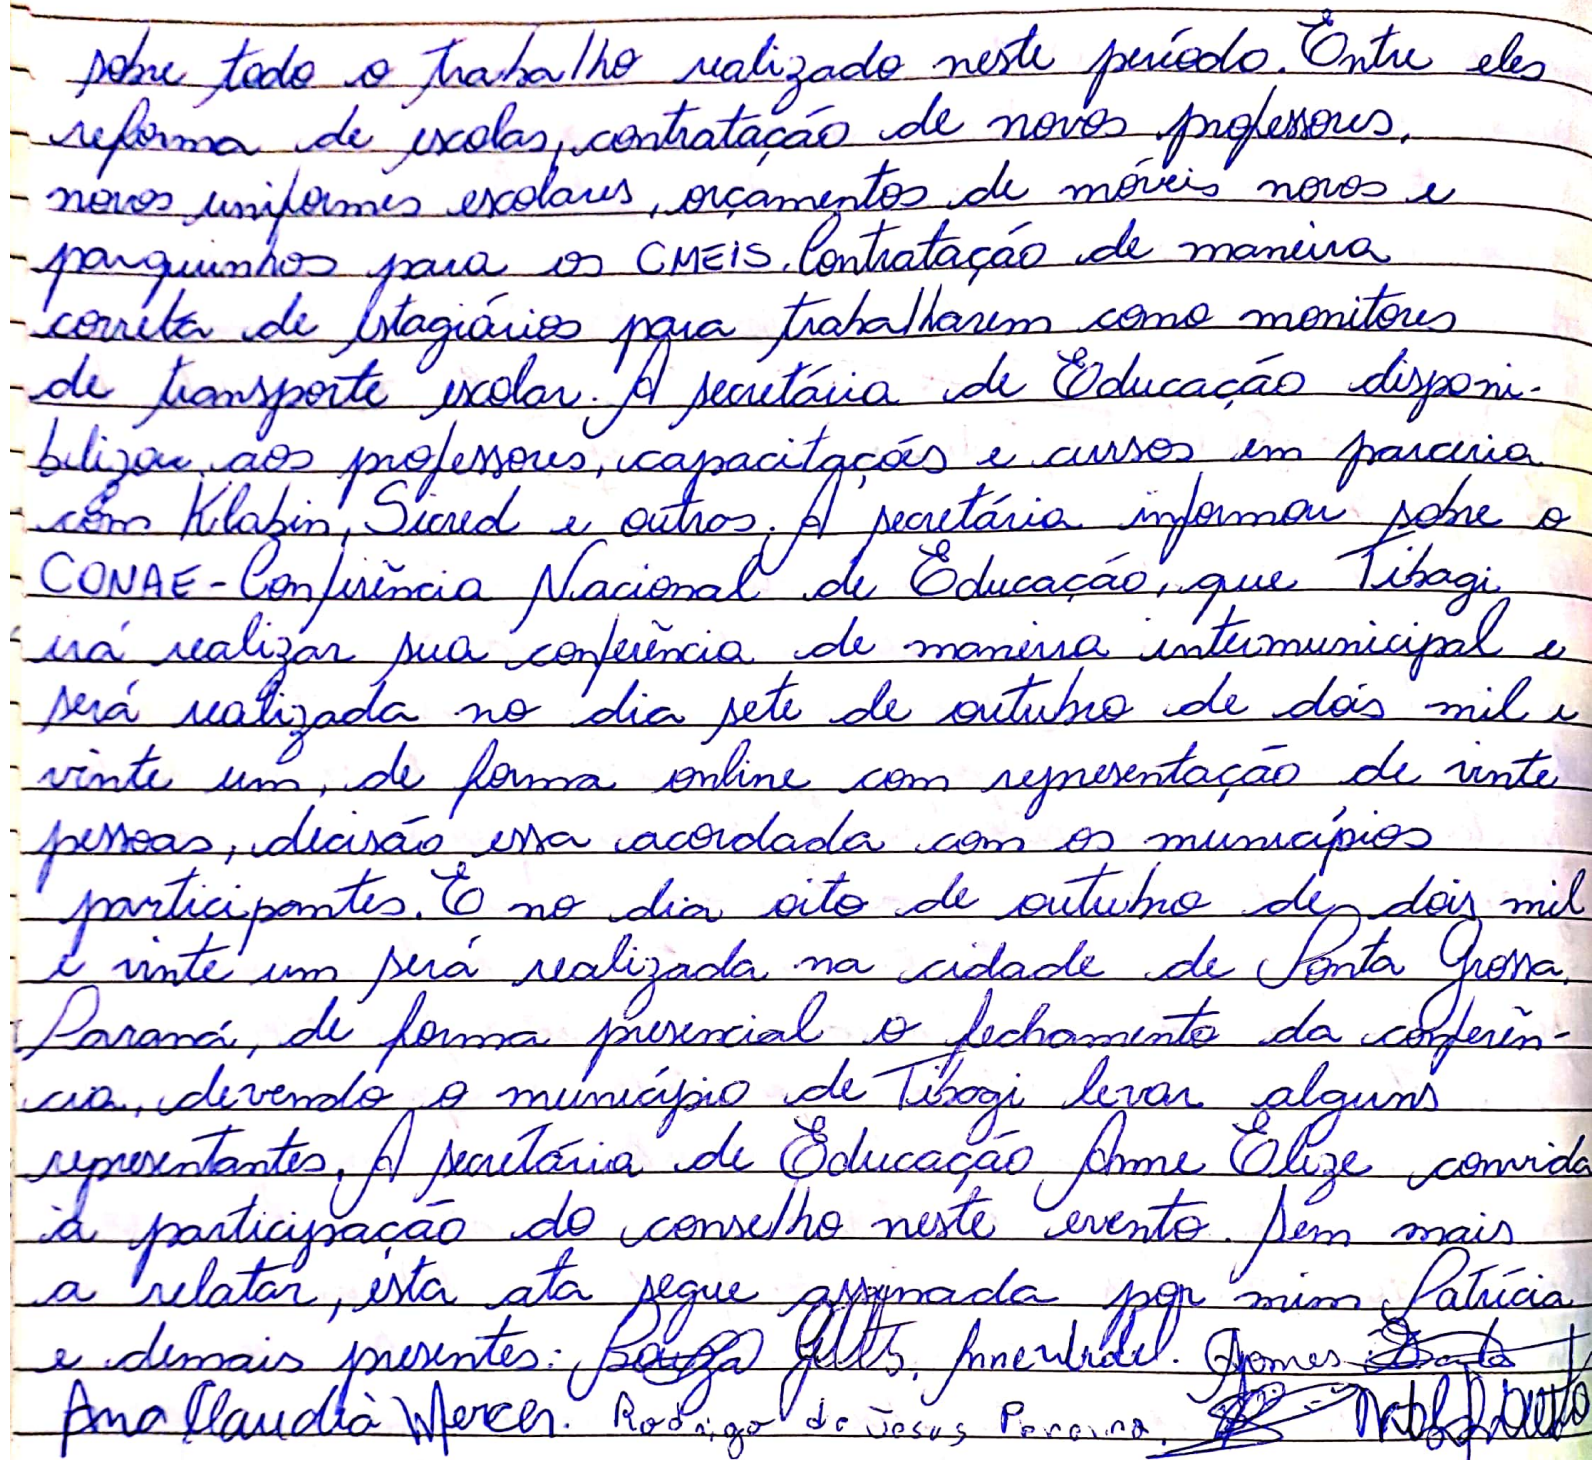 sobre todo o trabalho realizado neste período. Entre eles
reforma de escolas, contratação de novos professores,
novos uniformes escolares, orçamentos de móveis novos e
parquinhos para os CMEIS. Contratação de maneira
correta de estagiários para trabalharem como monitores
de transporte escolar. A secretária de Educação disponi-
bilizou aos professores, capacitações e cursos em parceria
com Klabin, Sicred e outros. A secretária informou sobre o
CONAE - Conferência Nacional de Educação, que Tibagi
irá realizar sua conferência de maneira intermunicipal e
será realizada no dia sete de outubro de dois mil e
vinte um, de forma online com representação de vinte
pessoas, decisão essa acordada com os municípios
participantes. E no dia oito de outubro de dois mil
e vinte um será realizada na cidade de Ponta Grossa,
Paraná, de forma presencial o fechamento da conferên-
cia, devendo o município de Tibagi levar alguns
representantes. A secretária de Educação Anne Elize convida
à participação do conselho neste evento. Sem mais
a relatar, esta ata segue assinada por mim Patrícia
e demais presentes: Gomes
Ana Claudia Mercer. Rodrigo de Jesus Pereira.